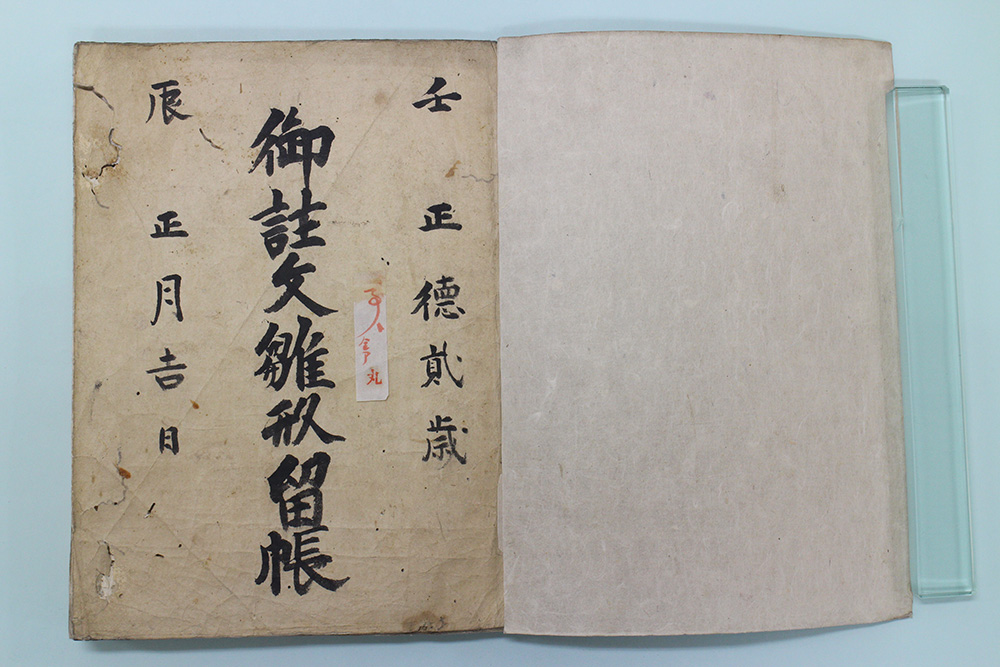 壬 正徳貳歳
御註文雛形留帳
辰 正月吉日